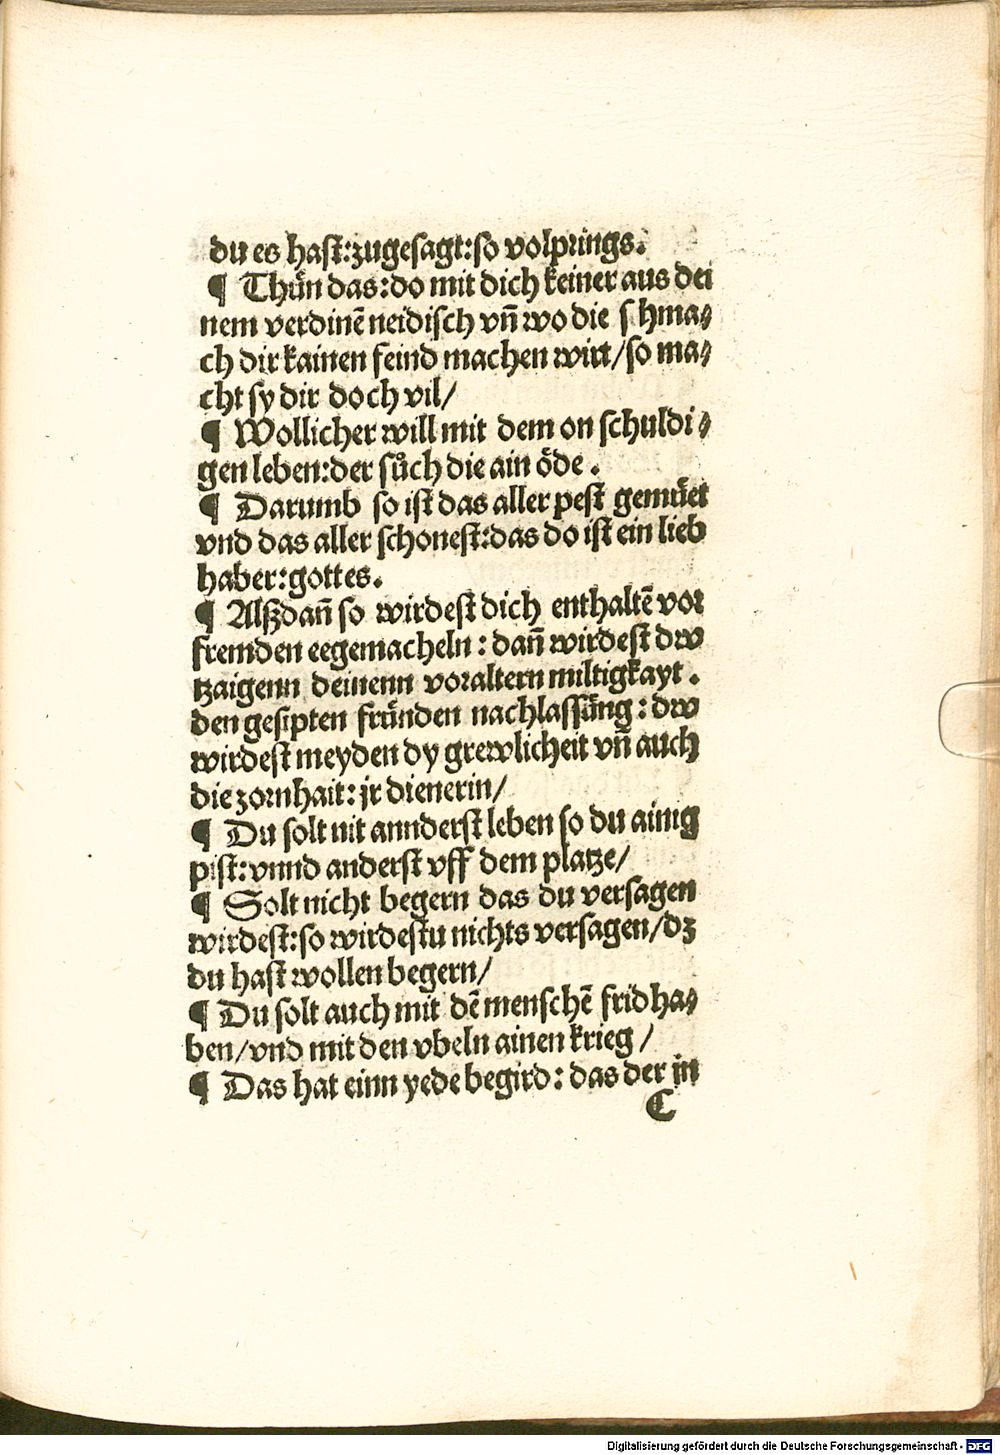 du es hast:zugesagt:so volprings.
¶ Thün das:do mit dich keiner aus dei
nem verdinē neidisch vn̄ wo die s hma⸗
ch dir kainen feind machen wirt/so ma⸗
cht sy dir doch vil/
¶ Wollicher will mit dem on schuldi⸗
gen leben:der sůch die ain öde.
¶ Darumb so ist das aller pest gemüet
vnd das aller schonest:das do ist ein lieb
haber:gottes.
¶ Alßdan̄ so wirdest dich enthaltē vor
fremden eegemacheln: dan̄ wirdest dw
tzaigenn deinenn voraltern miltigkayt.
den gesipten fründen nachlassüng: dw
wirdest meyden dy grewlicheit vn̄ auch
die zornhait: jr dienerin/
¶ Du solt nit annderst leben so du ainig
pist:vnnd anderst vff dem platze/
¶ Solt nicht begern das du versagen
wirdest:so wirdestu nichts versagen/dz
du hast wollen begern/
¶ Du solt auch mit dē menschē frid ha⸗
ben/vnd mit den vbeln ainen krieg/
¶ Das hat einn yede begird: das der in
C
Digitalisierung gefördert durch die Deutsche Forschungsgemeinschaft - DFG